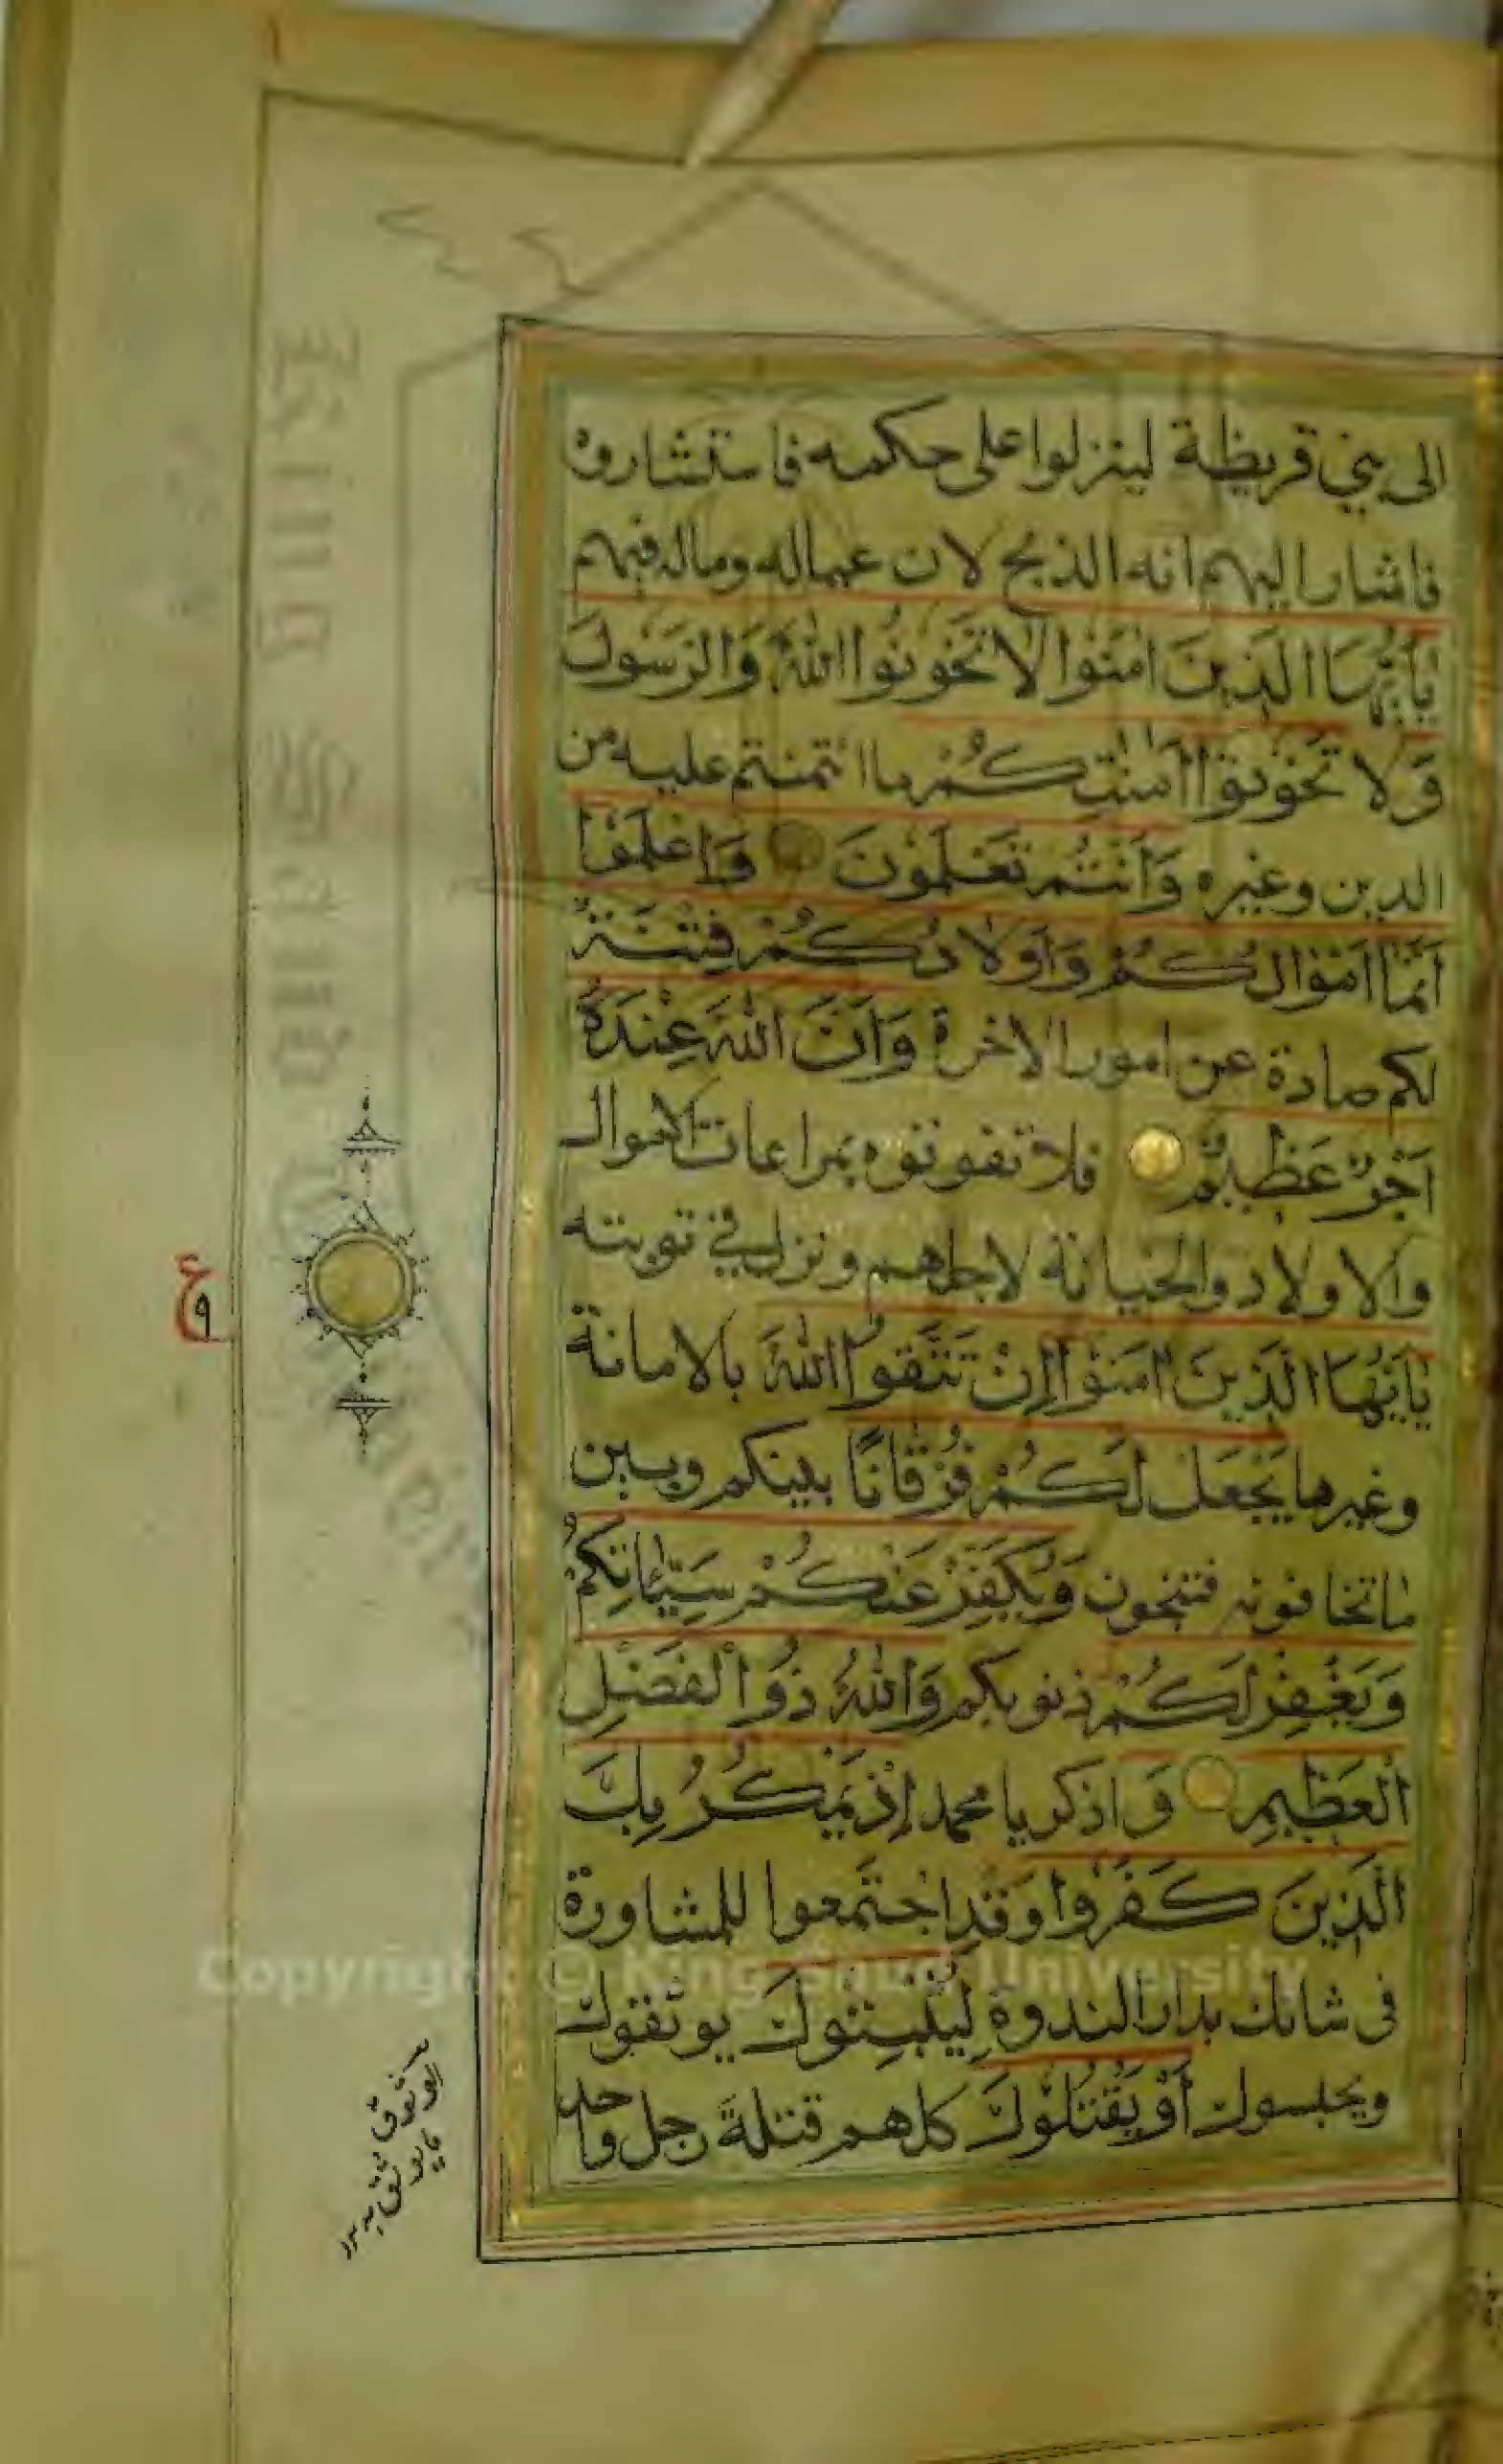 الى بني قريظة لينزلوا على حكمه فاستشاروه
فاشار اليهم انه الذبح لان عياله وماله فيهم
يٰاَيُّهَا الَّذِينَ اٰمَنُوا لَا تَخُونُوا اللّٰهَ وَالرَّسُولَ
وَلَا تَخُونُوٓا اَمٰنٰتِكُمْ ما ائتمنتم عليه من
الدين وغيره وَاَنْتُمْ تَعْلَمُونَ وَاعْلَمُوٓا
اَنَّمَآ اَمْوَالُكُمْ وَاَوْلَادُكُمْ فِتْنَةٌ
لكم صادة عن امور الاخرة وَاَنَّ اللّٰهَ عِنْدَهٗٓ
اَجْرٌ عَظِيمٌ فلا تفوتوه بمراعات الاموال
والاولاد والخيانة لاجلهم ونزل في توبته
يٰاَيُّهَا الَّذِينَ اٰمَنُوٓا اِنْ تَتَّقُوا اللّٰهَ بالامانة
وغيرها يَجْعَلْ لَكُمْ فُرْقَانًا بينكم وبين
ما تخافونه فتنجون وَيُكَفِّرْ عَنْكُمْ سَيِّئَاتِكُمْ
وَيَغْفِرْ لَكُمْ ذنوبكم وَاللّٰهُ ذُو الْفَضْلِ
الْعَظِيمِ وَاذكر يا محمد اِذْ يَمْكُرُ بِكَ
الَّذِينَ كَفَرُوا وَقد اجتمعوا للمشاورة
فى شانك بدار الندوة لِيُثْبِتُوكَ يوثقوك
ويحبسوك اَوْ يَقْتُلُوكَ كلهم قتلة رجل واحد
ع
٩
Copyright © King Saud University